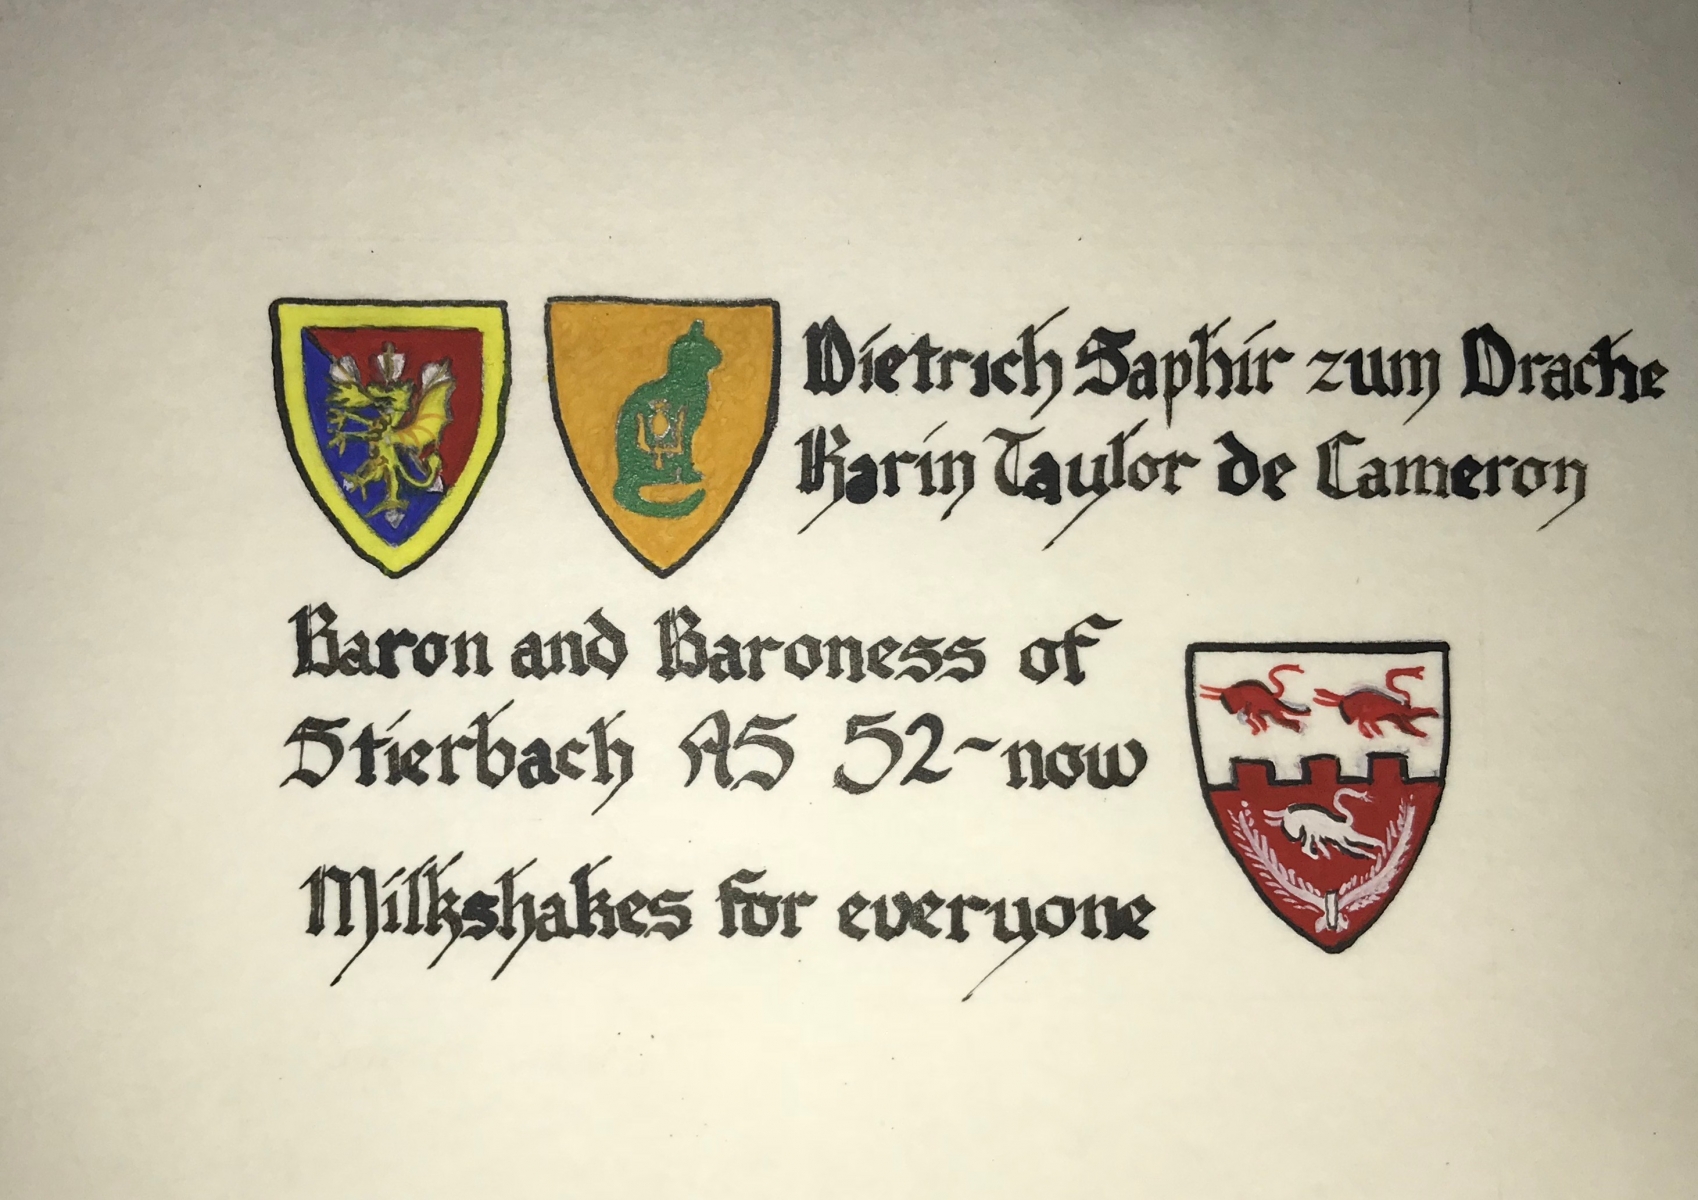 Dietrich Saphir zum Drache
Karin Taylor de Cameron
Baron and Baroness of
Stierbach AS 52-now
Milkshakes for everyone